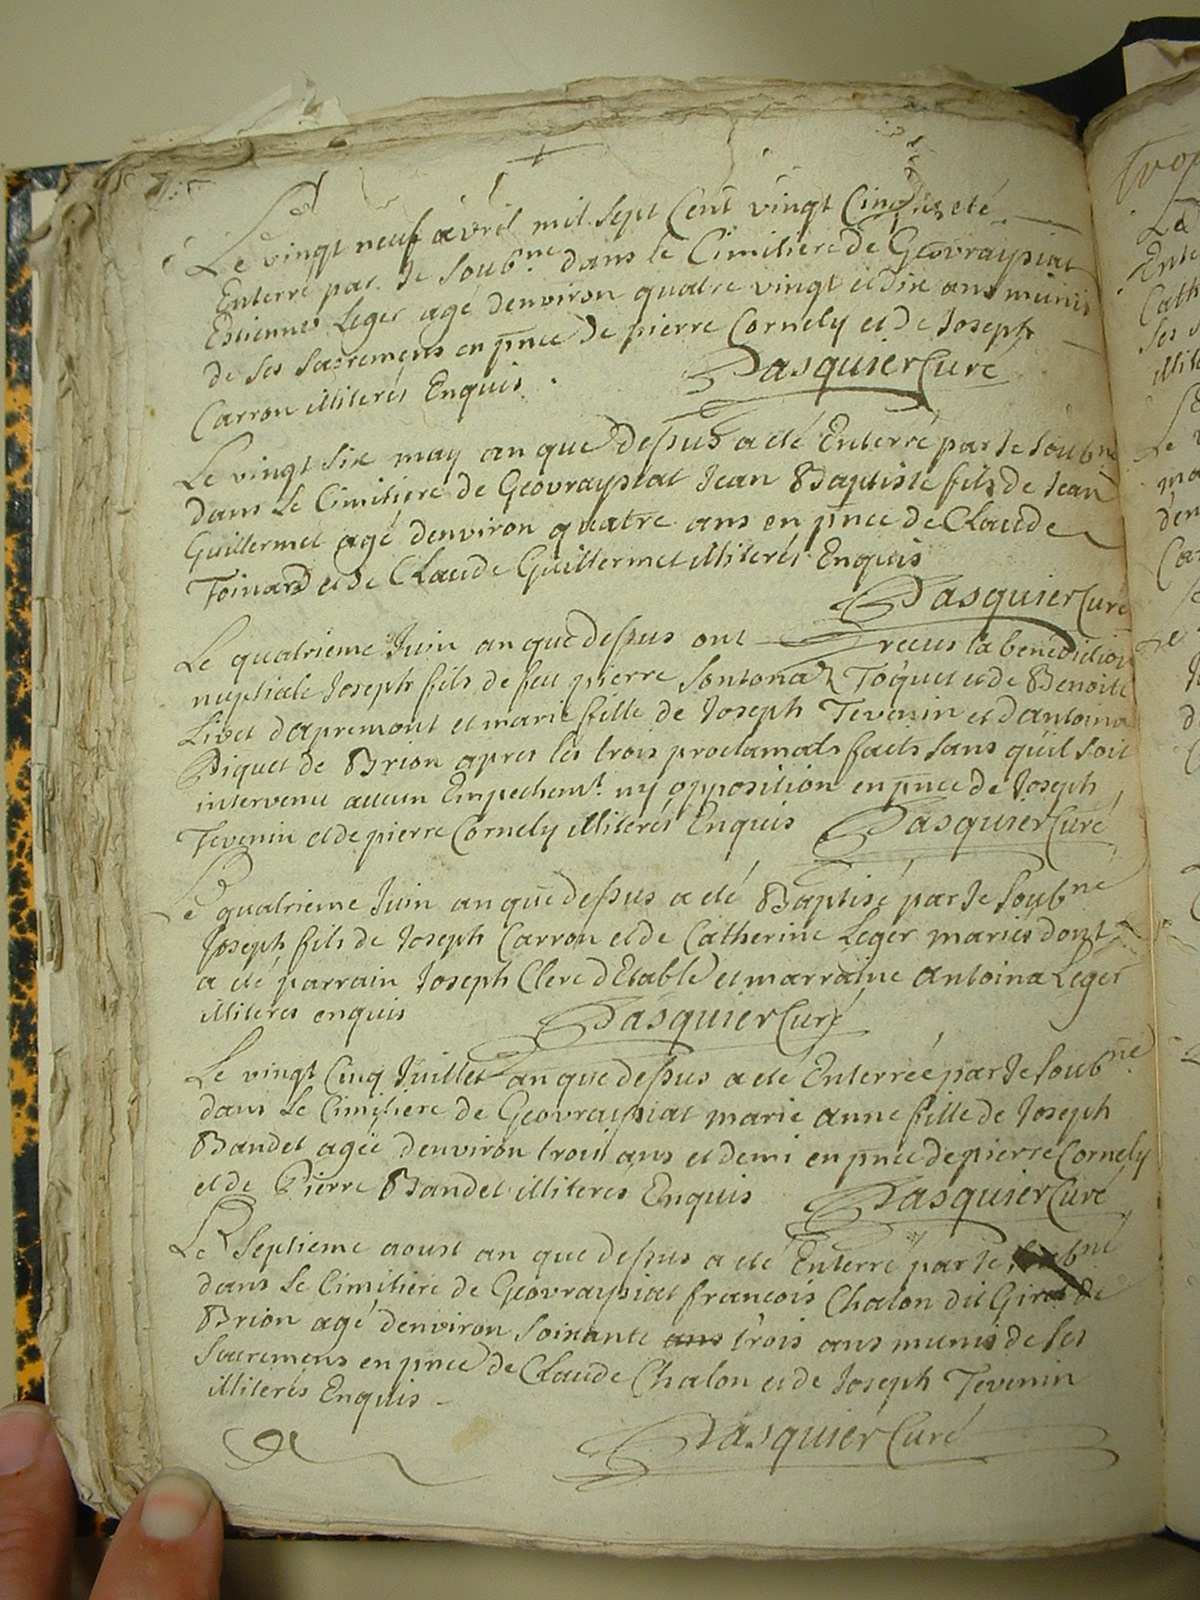 Le vingt neuf avril mil sept Cent vingt Cinq a eté
Enterré par Je soubne dans le Cimitiere de Geovraysiat
Estienne Leger agé denviron quatre vingt et dix ans munis
de ses sacremens en pnce de pierre Cornely et de Joseph
Carron illiterés Enquis. Pasquier Curé
Le vingt six may an que despus a eté Enterré par Je soubne
dans Le Cimitiere de Geovraysiat Jean Baptiste fils de Jean
Guillermet agé denviron quatre ans en pnce de Claude
Toinard et de Claude Guillermet illiterés Enquis
Pasquier Curé
Le quatrieme Juin an que despus ont receus la benediction
nuptiale Joseph fils de feu pierre Sontona Toquet et de Benoite
Livet dapremont et marie fille de Joseph Tevenin et dantoina
Piquet de Brion apres les trois proclamats faits sans quil soit
intervenu aucun Empechemt ny opposition en pnce de Joseph
Tevenin et de pierre Cornely illiterés Enquis Pasquier Curé
Le quatrieme Juin an que despus a eté Baptisé par Je soubné
Joseph fils de Joseph Carron et de Catherine Leger mariés dont
a eté parrain Joseph Clerc d'Etable et marraine Antoina Leger
illiterés enquis Pasquier Curé
Le vingt Cinq Juillet an que despus a eté Enterréé par Je soubne
dans Le Cimitiere de Geovraysiat marie anne fille de Joseph
Bandet agée denviron trois ans et demi en pnce de pierre Cornely
et de Pierre Bandet illiteres Enquis Pasquier Curé
Le Septieme aoust an que despus a eté Enterré par Je soubné
dans Le Cimitiere de Geovraysiat francois Chalon dit Girod de
Brion agé denviron soixante ans trois ans munis de ses
sacremens en pnce de Claude Chalon et de Joseph Tevenin
illiterés Enquis
Pasquier Curé